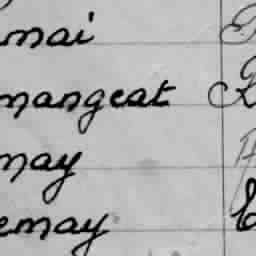 mai
mangeat R
may
emay